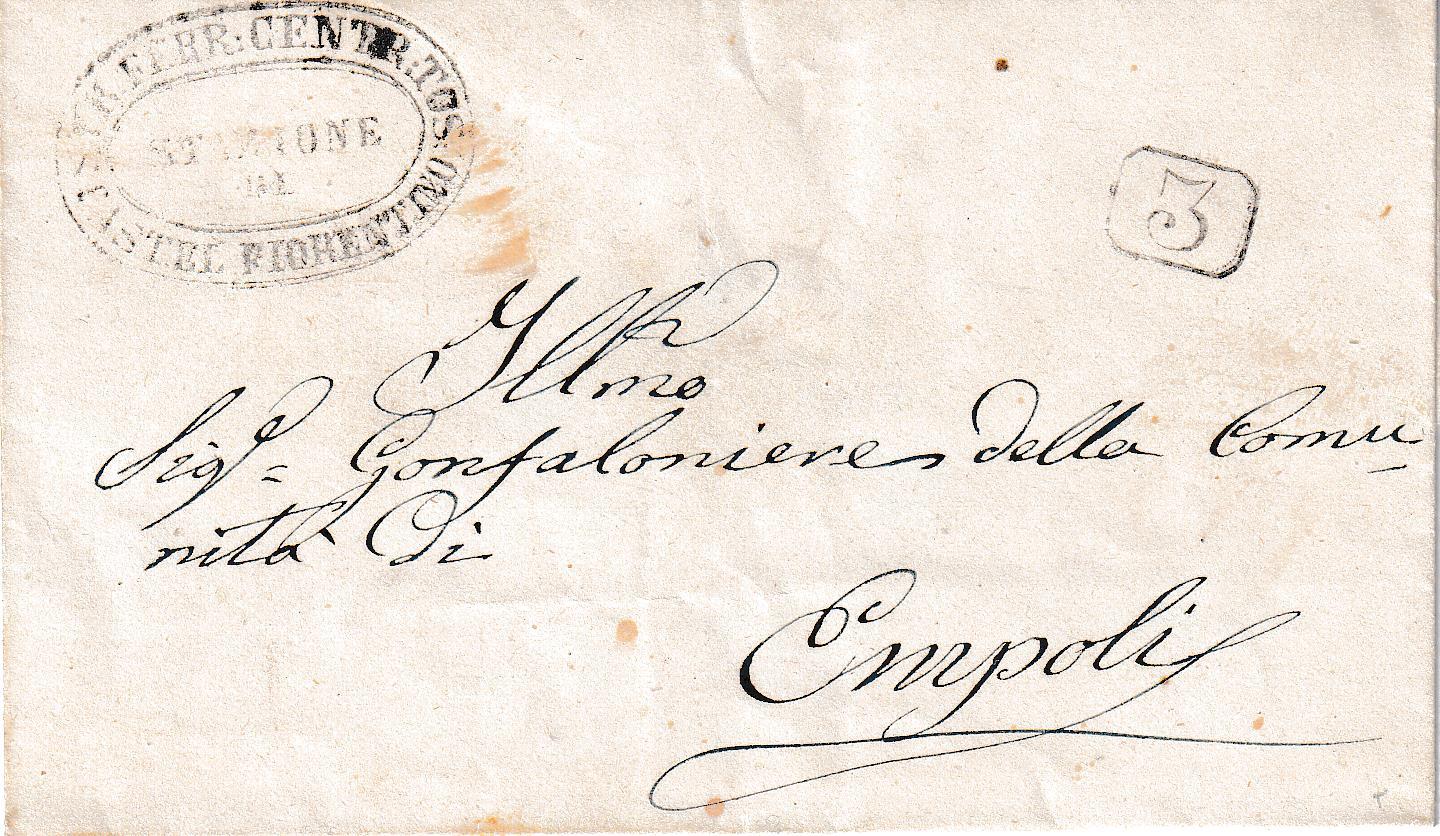 FERR: CENTR: TOS
STAZIONE
di
CASTEL FIORENTINO
3
Illmo
Sigr = Gonfaloniere della Comu
nità di
Empoli